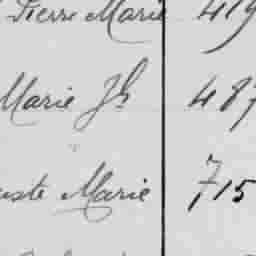 Pierre Marie 419
Marie Jh 487
uste Marie 715